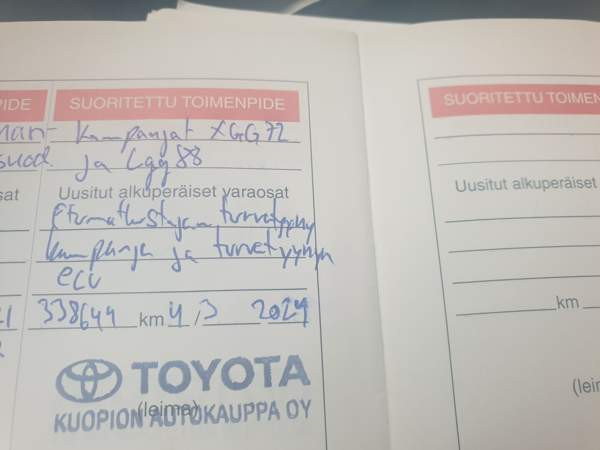 PIDE
SUORITETTU TOIMENPIDE
SUORITETTU TOIMEN
Kampanjat XGG72
suod. ja Lgg88
sat
Uusitut alkuperäiset varaosat
Uusitut alkuperäiset
Etumatkustajan turvatyyny
kampanja ja turvatyynyn
ecu
338644 km 4/3 2024
km
TOYOTA
(leima)
KUOPION AUTOKAUPPA OY
(lei